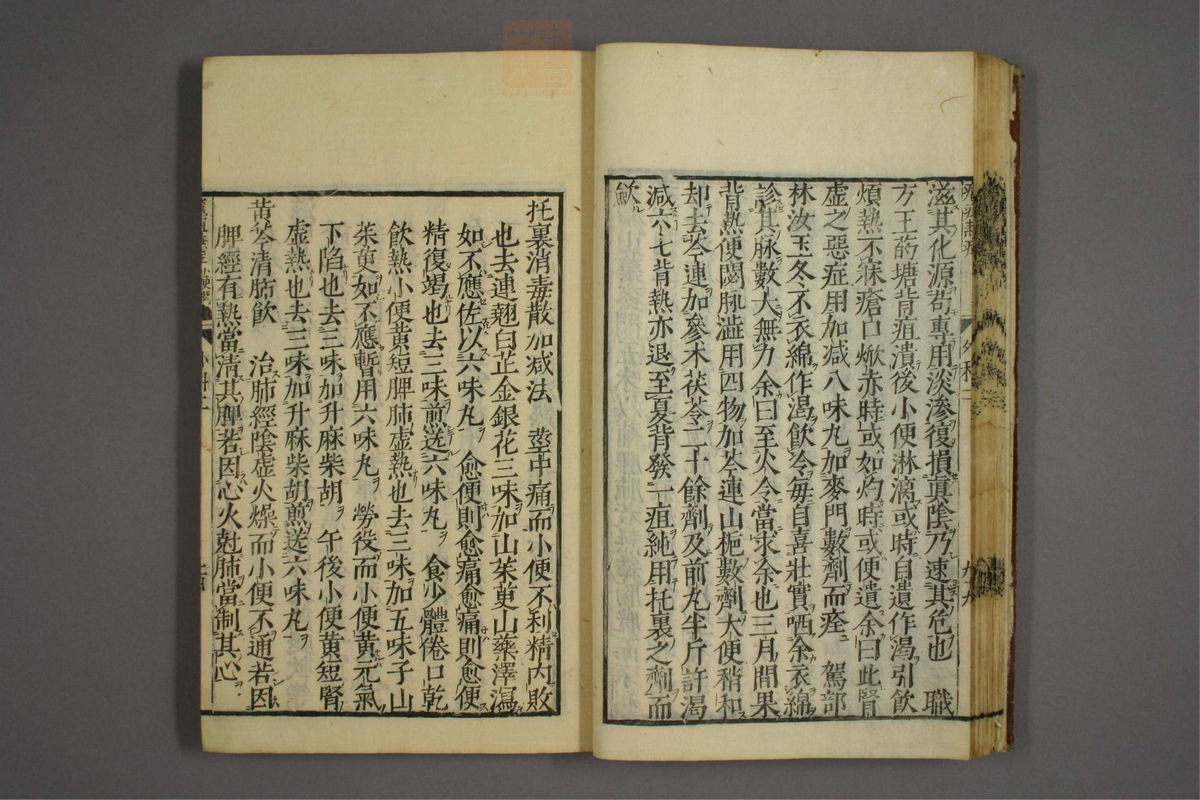 滋其化源苟專用淡滲復損眞陰乃速其危也　職
方王的塘背疽潰後小便淋漓或時自遺作渴引飲
煩熱不寐瘡口焮赤時或如灼時或便遺余曰此腎
虛之惡症用加減八味丸加麥門數劑而痊　駕部
林汝玉冬不衣綿作渴飲冷每自喜壯實哂余衣綿
診其脉數大無力余曰至火令當求余也三月間果
背熱便閟脉澁用四物加芩連山梔數劑大便稍和
却去芩連加參朮茯苓二十餘劑及前丸半斤許渴
減六七背熱亦退至夏背發一疽純用托裏之劑而
歟
托裏消毒散加減法　莖中痛而小便不利精内敗
也去連翹白芷金銀花三味加山茱萸山藥澤瀉
如不應佐以六味丸　愈便則愈痛愈痛則愈便
精復竭也去三味煎送六味丸　食少體倦口乾
飲熱小便黄短脾肺虛熱也去三味加五味子山
茱萸如不應暫用六味丸　勞役而小便黄元氣
下陷也去三味加升麻柴胡　午後小便黄短腎
虛熱也去三味加升麻柴胡煎送六味丸
黄芩清肺飲　治肺經陰虛火燥而小便不通若因
脾經有熱當清其脾若因心火尅肺當制其心